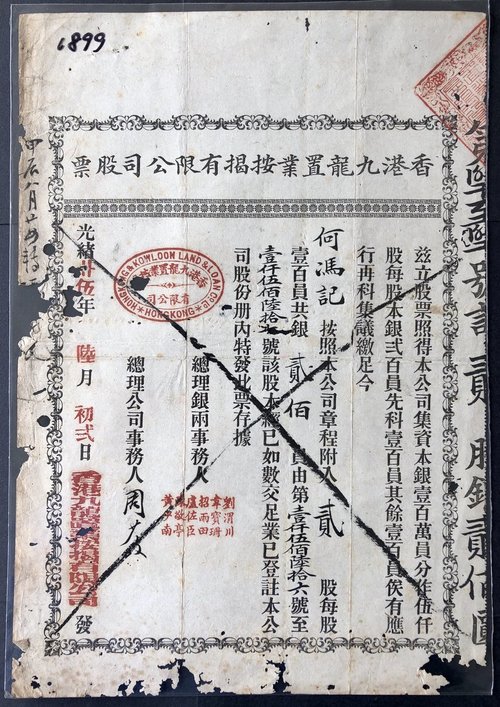 1899
香港九龍置業按揭有限公司股票
茲立股票照得本公司集資本銀壹百萬員分作伍仟
股每股本銀弍百員先科壹百員其餘壹百員俟有應
行再科集議繳足今
何馮記 按照本公司章程附入 貳 股每股
壹百員共銀 貳佰 員由第壹仟伍佰陸拾六號至
壹仟伍佰陸拾七號該股本經已如數交足業已登註本公
司股份册內特發此票存據
總理銀兩事務人
劉渭川
韋寶珊
招雨田
盧佐臣
總理公司事務人
光緒廿伍年 陸月 初弍日 香港九龍置業按揭有限公司 發
HONGKONG & KOWLOON LAND & LOAN CO LD
香港九龍置業按揭
有限公司
HONGKONG
號記 貳 股銀貳佰圓